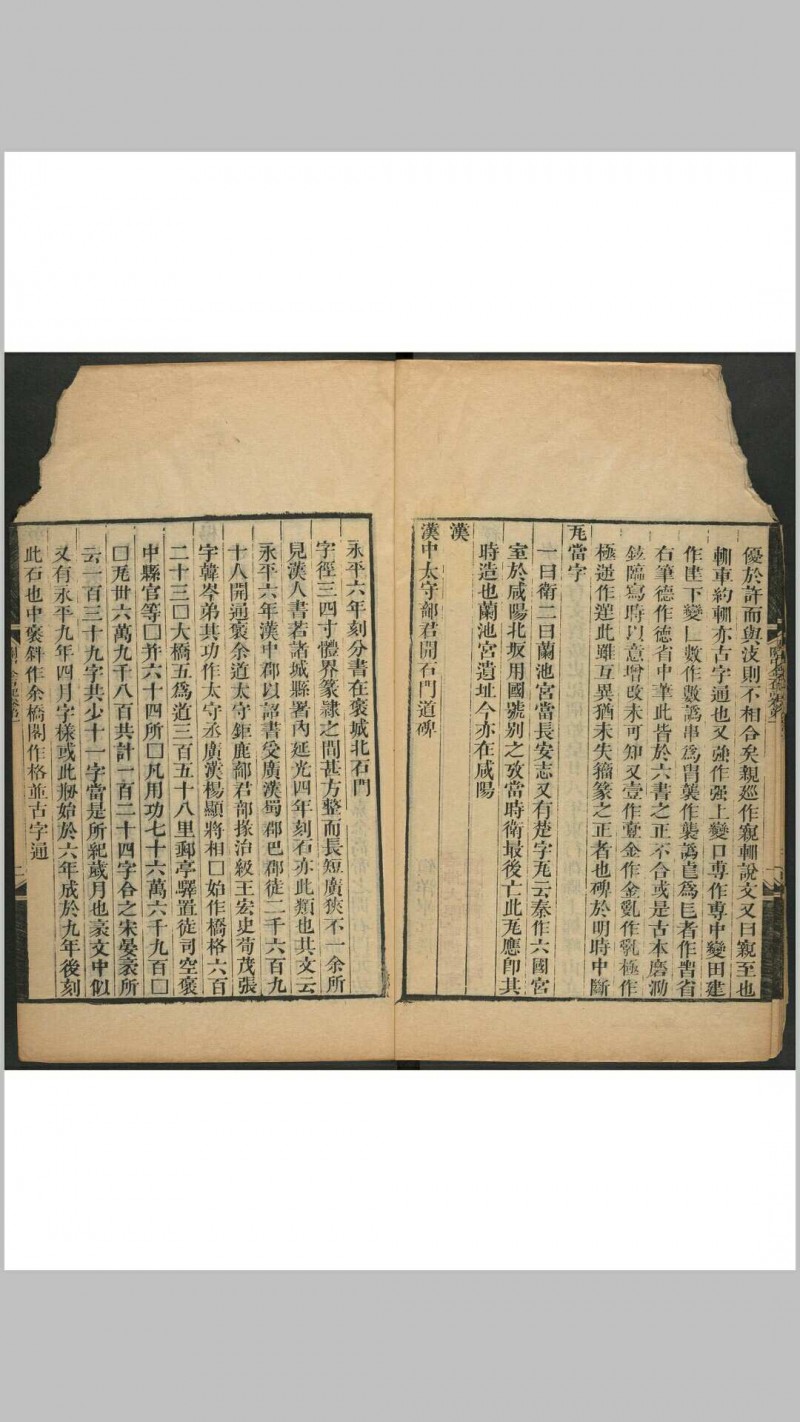 優於許而與汝則不相合矣親廵作窺輣說文又曰窺至也
輣車約輣亦古字通也又強作强上變口專作専中變田建
作𨻶下變乚數作數譌串爲冑龔作龏譌㠯爲㠯者作㫖省
右筆德作德省中𠦒此皆於六書之正不合或是古本磨泐
鉉臨寫時以意增改未可知又壹作壼金作金亂作乿極作
極逆作逆此雖互異猶未失籀篆之正者也碑於明時中斷
瓦當字
一曰衛二曰蘭池宮當長安志又有楚字瓦云秦作六國宮
室於咸陽北坂用國號别之攷當時衛最後亡此瓦應卽其
時造也蘭池宮遺址今亦在咸陽
漢
漢中太守鄐君開石門道碑
永平六年刻分書在襃城北石門
字徑三四寸體界篆隷之間甚方整而長短廣狹不一余所
見漢人書若諸城縣署內延光四年刻石亦此類也其文云
永平六年漢中郡以詔書受廣漢蜀郡巴郡徒二千六百九
十八開通襃余道太守鉅鹿鄐君部掾治級王宏史荀茂張
字韓岑弟其功作太守丞廣漢楊顯將相囗始作橋格六百
二十三囗大橋五爲道三百五十八里郵亭驛置徒司空襃
中縣官等囗幷六十四所囗凡用功七十六萬六千九百囗
囗瓦卅六萬九千八百共計一百二十四字合之宋晏袤所
云一百三十九字共少十一字當是所紀歲月也袤文中似
又有永平九年四月字樣或此刱始於六年成於九年後刻
此石也中襃斜作余橋閣作格並古字通
二